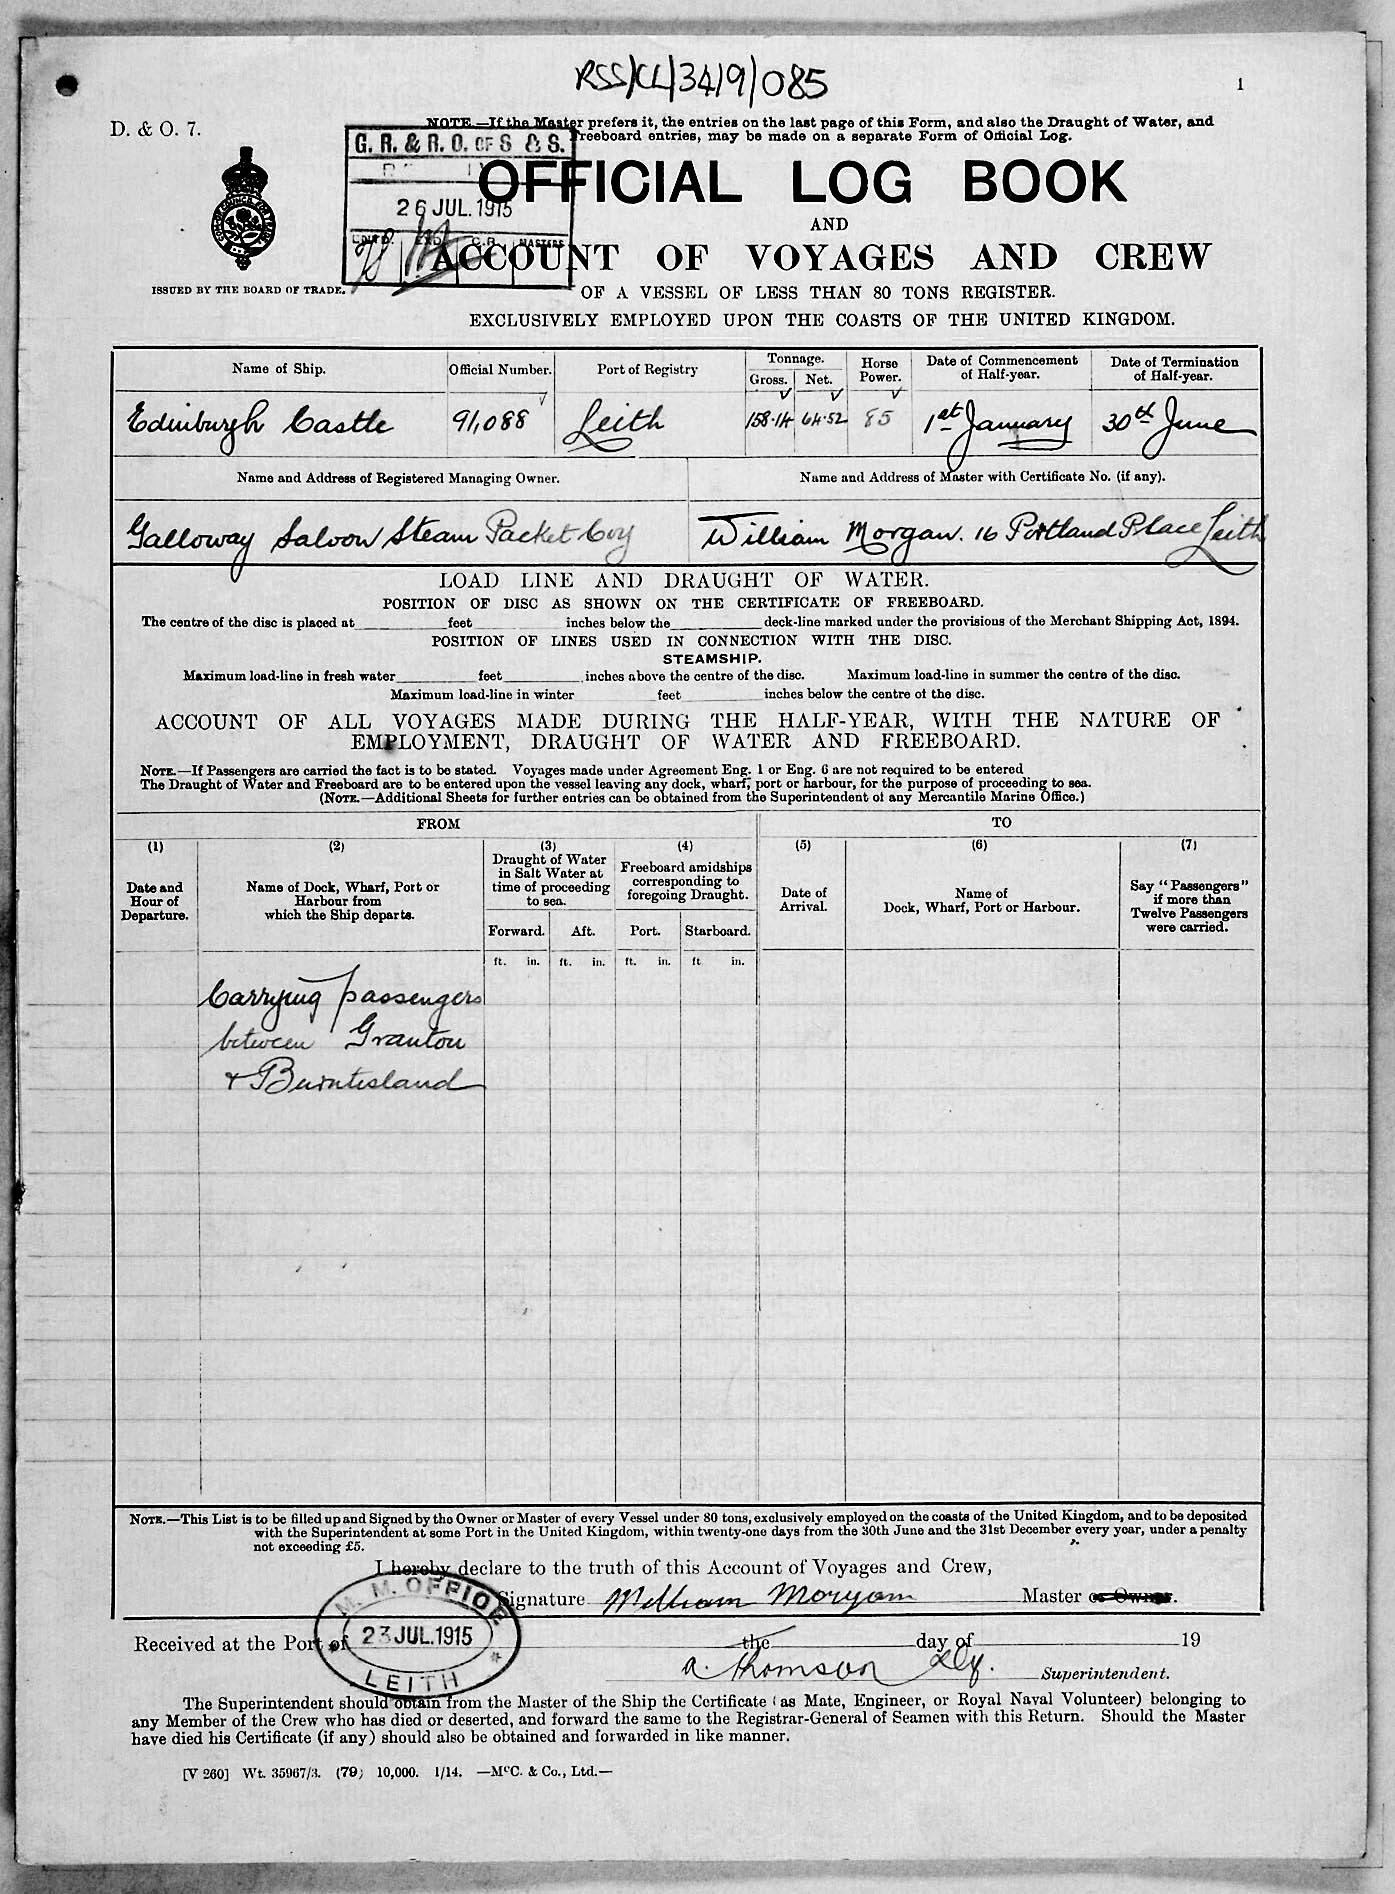 RSS/CL/3419/085
1
D. & O. 7.
NOTE.—If the Master prefers it, the entries on the last page of this Form, and also the Draught of Water, and
Freeboard entries, may be made on a separate Form of Official Log.
G. R. & R. O. OF S & S.
26 JUL. 1915
MASTERS
OFFICIAL LOG BOOK
AND
ACCOUNT OF VOYAGES AND CREW
ISSUED BY THE BOARD OF TRADE.
OF A VESSEL OF LESS THAN 80 TONS REGISTER.
EXCLUSIVELY EMPLOYED UPON THE COASTS OF THE UNITED KINGDOM.
Name of Ship. Official Number. Port of Registry Tonnage. Gross. Net. Horse Power. Date of Commencement of Half-year. Date of Termination of Half-year.
Edinburgh Castle 91,088 Leith 158.14 64.52 85 1st January 30th June
Name and Address of Registered Managing Owner. Name and Address of Master with Certificate No. (if any).
Galloway Saloon Steam Packet Coy William Morgan. 16 Portland Place Leith
LOAD LINE AND DRAUGHT OF WATER.
POSITION OF DISC AS SHOWN ON THE CERTIFICATE OF FREEBOARD.
The centre of the disc is placed at feet inches below the deck-line marked under the provisions of the Merchant Shipping Act, 1894.
POSITION OF LINES USED IN CONNECTION WITH THE DISC.
STEAMSHIP.
Maximum load-line in fresh water feet inches above the centre of the disc. Maximum load-line in summer the centre of the disc.
Maximum load-line in winter feet inches below the centre of the disc.
ACCOUNT OF ALL VOYAGES MADE DURING THE HALF-YEAR, WITH THE NATURE OF
EMPLOYMENT, DRAUGHT OF WATER AND FREEBOARD.
NOTE.—If Passengers are carried the fact is to be stated. Voyages made under Agreement Eng. 1 or Eng. 6 are not required to be entered
The Draught of Water and Freeboard are to be entered upon the vessel leaving any dock, wharf, port or harbour, for the purpose of proceeding to sea.
(NOTE.—Additional Sheets for further entries can be obtained from the Superintendent of any Mercantile Marine Office.)
FROM TO
(1) (2) (3) (4) (5) (6) (7)
Date and Hour of Departure.
Name of Dock, Wharf, Port or Harbour from which the Ship departs.
Draught of Water in Salt Water at time of proceeding to sea.
Freeboard amidships corresponding to foregoing Draught.
Date of Arrival.
Name of Dock, Wharf, Port or Harbour.
Say "Passengers" if more than Twelve Passengers were carried.
Forward. Aft. Port. Starboard.
ft. in. ft. in. ft. in. ft in.
Carrying passengers
between Granton
& Burntisland
NOTE.—This List is to be filled up and Signed by the Owner or Master of every Vessel under 80 tons, exclusively employed on the coasts of the United Kingdom, and to be deposited
with the Superintendent at some Port in the United Kingdom, within twenty-one days from the 30th June and the 31st December every year, under a penalty
not exceeding £5.
I hereby declare to the truth of this Account of Voyages and Crew,
Signature William Morgan Master or Owner.
M. M. OFFICE
23 JUL. 1915
LEITH
Received at the Port of the day of 19
A. Thomson Superintendent.
The Superintendent should obtain from the Master of the Ship the Certificate (as Mate, Engineer, or Royal Naval Volunteer) belonging to
any Member of the Crew who has died or deserted, and forward the same to the Registrar-General of Seamen with this Return. Should the Master
have died his Certificate (if any) should also be obtained and forwarded in like manner.
[V 260] Wt. 35967/3. (79) 10,000. 1/14. —McC. & Co., Ltd.—